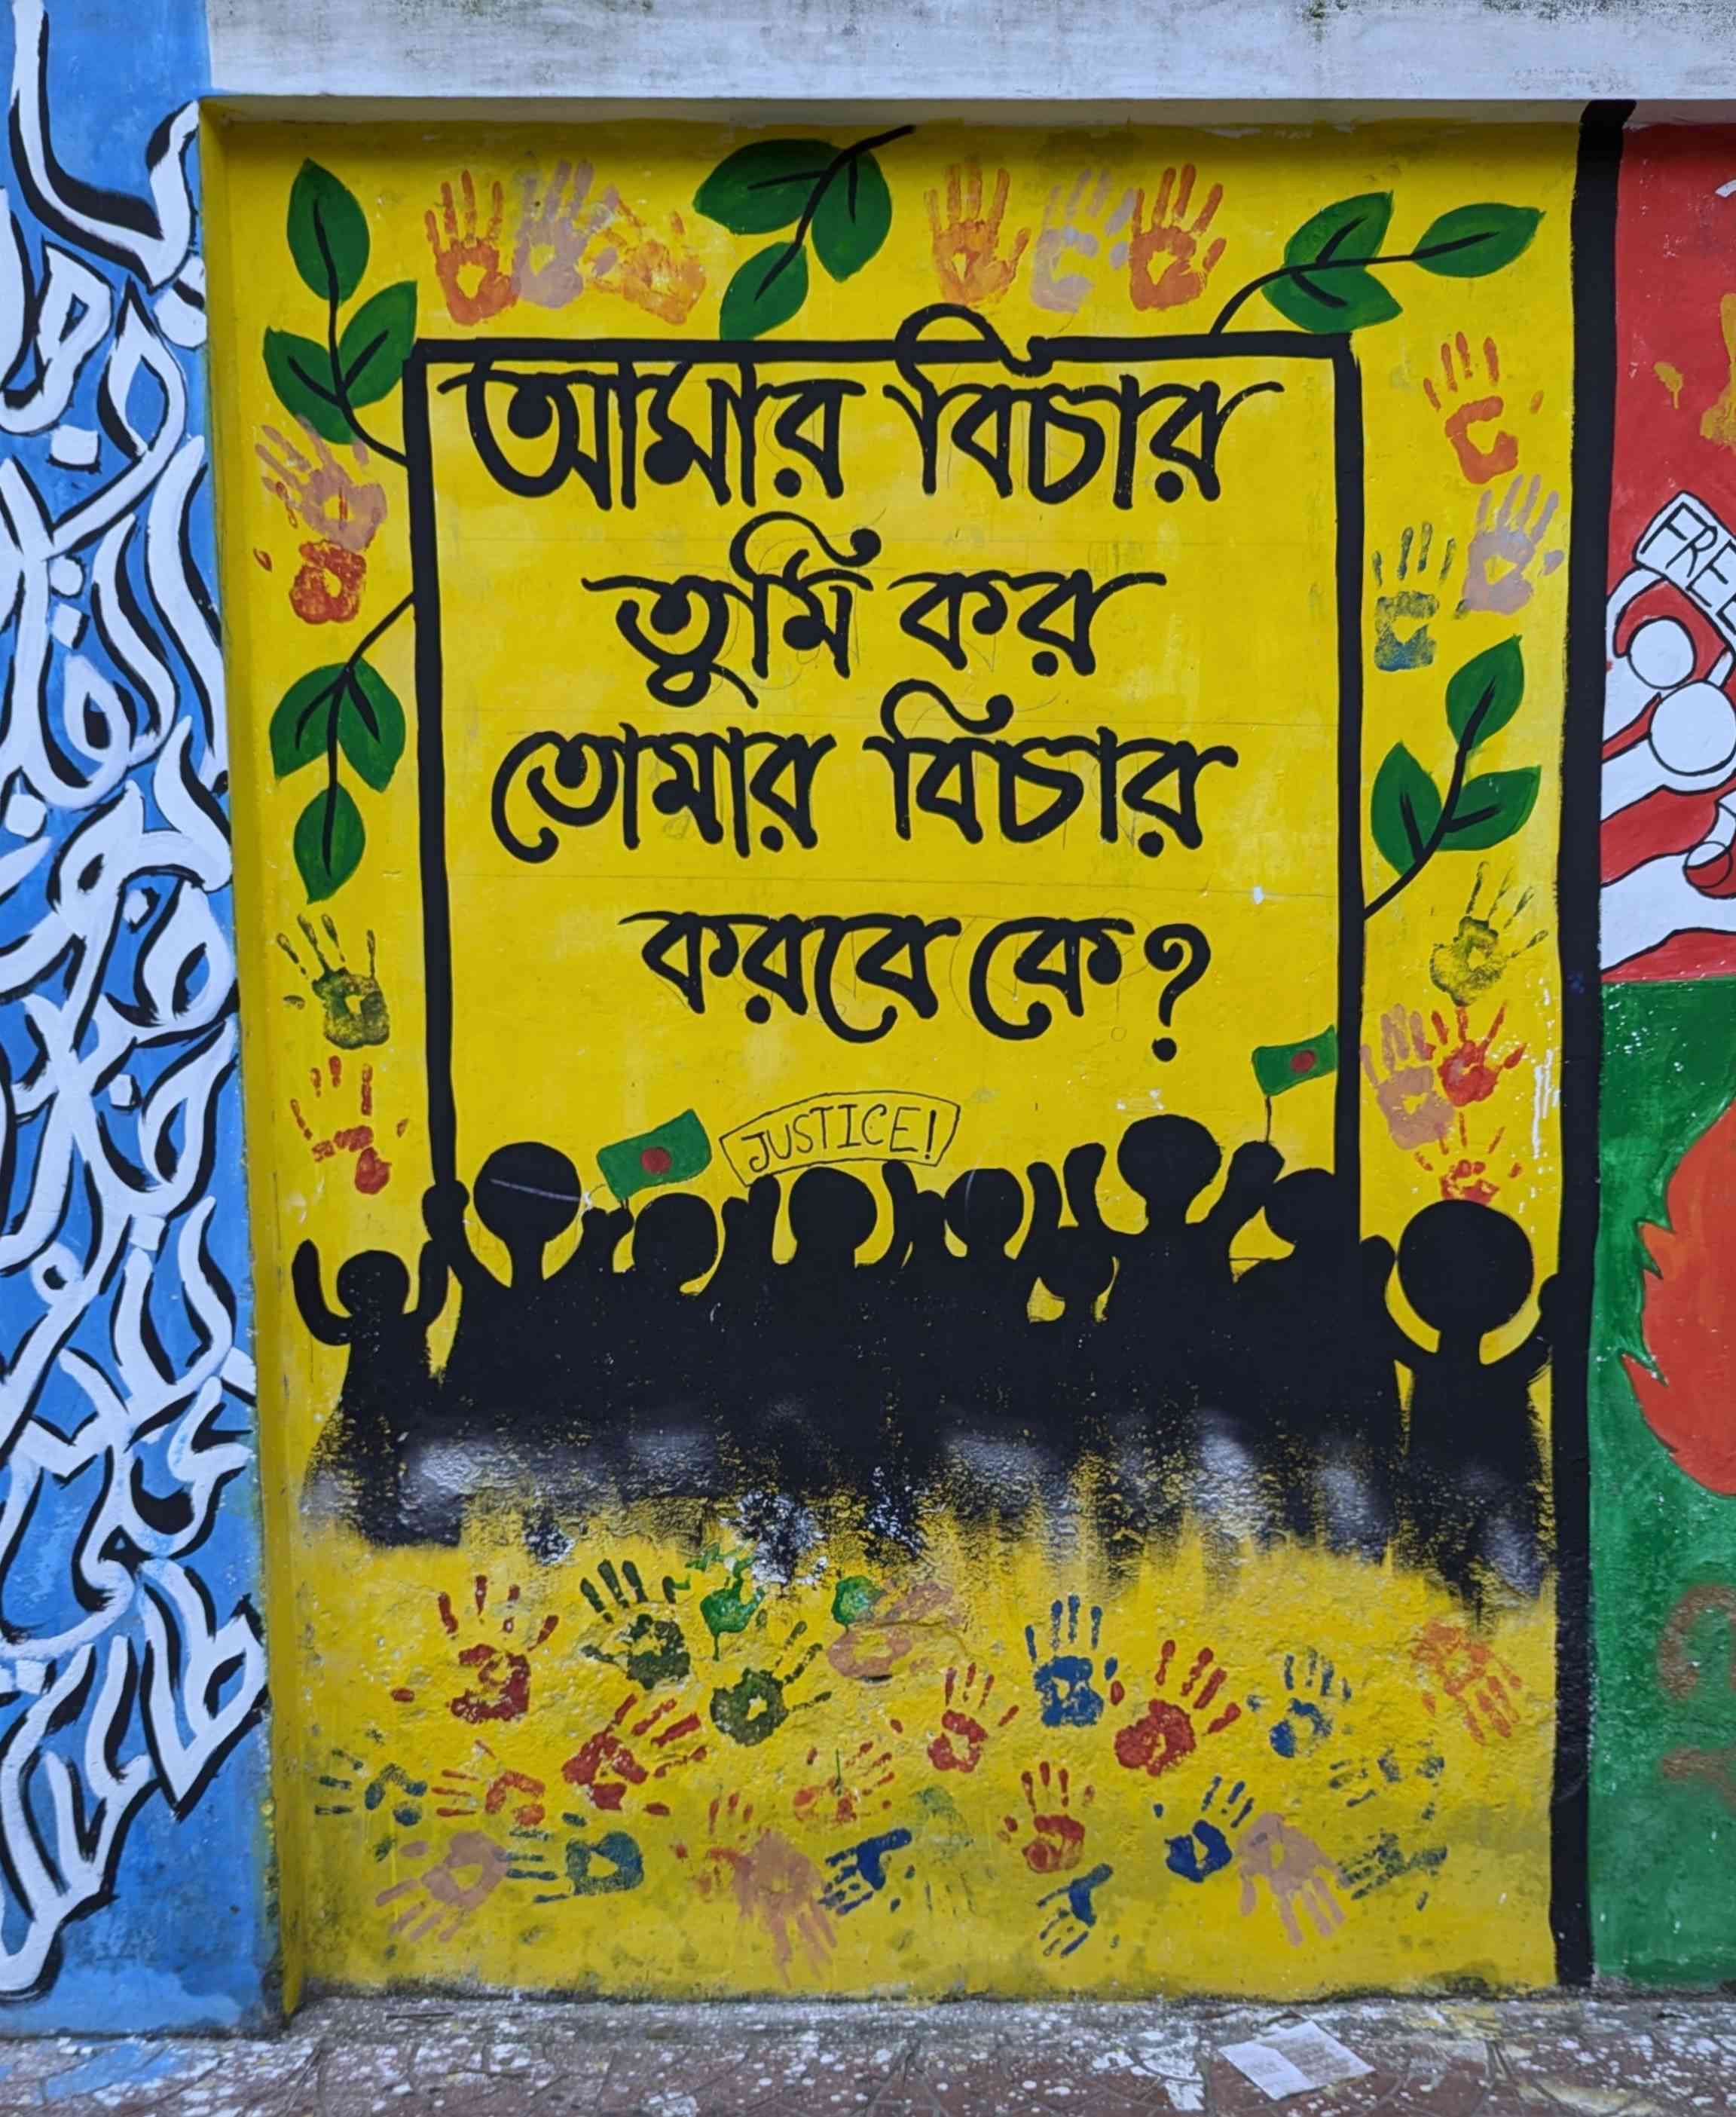 আমার বিচার
তুমি কর
তোমার বিচার
করবে কে?
JUSTICE!